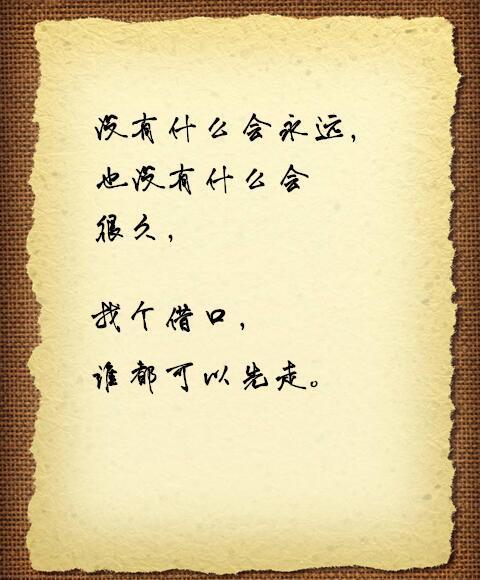 没有什么会永远，
也没有什么会
很久，
找个借口，
谁都可以先走。